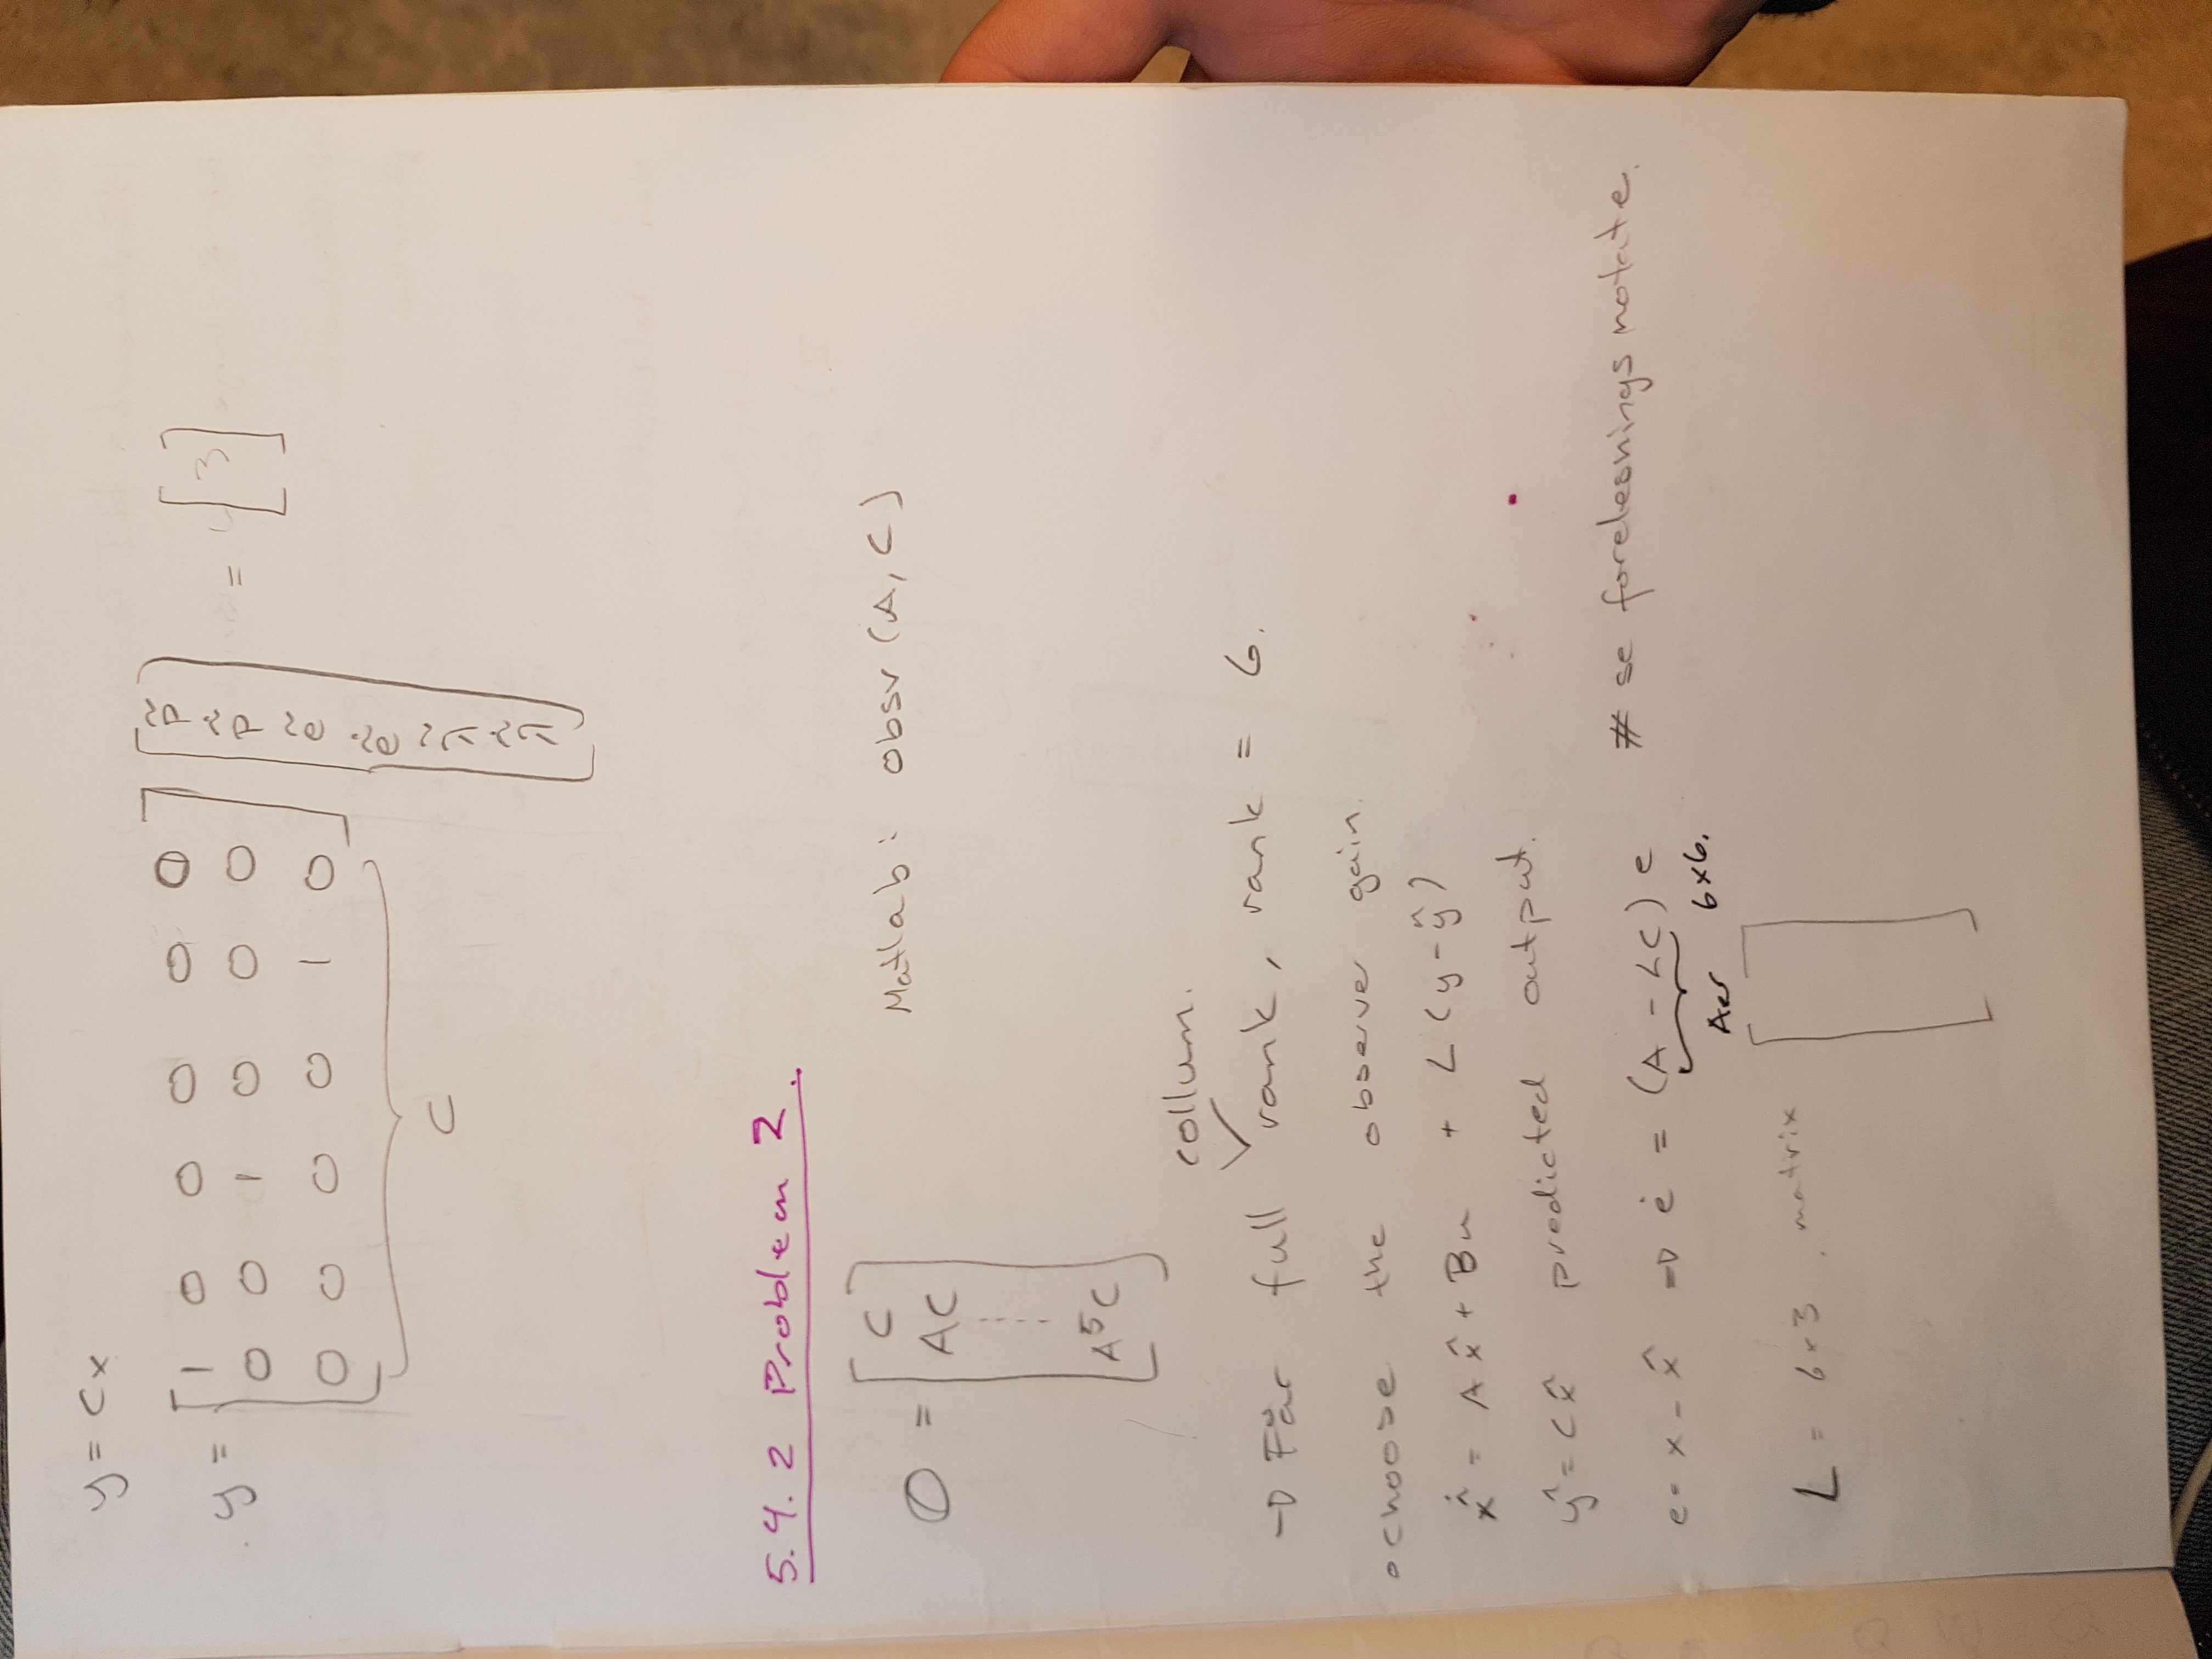 y = Cx
y = [ 1 0 0 0 0 0
0 0 1 0 0 0
0 0 0 0 1 0 ] [ p̃ p̃̇ ẽ ẽ̇ λ̃ λ̃̇ ] = [ 3 ]
C
5.4.2 Problem 2.
O = [ C
AC
⋮
A⁵C ]
Matlab: obsv(A, C)
collum.
→ Får full rank, rank = 6.
• choose the observer gain.
x̂̇ = Ax̂ + Bu + L(y - ŷ)
ŷ = Cx̂ predicted output.
e = x - x̂ ⇒ ė = (A - LC) e # se forelesnings notate.
6x6.
L = 6x3. matrix [ ]